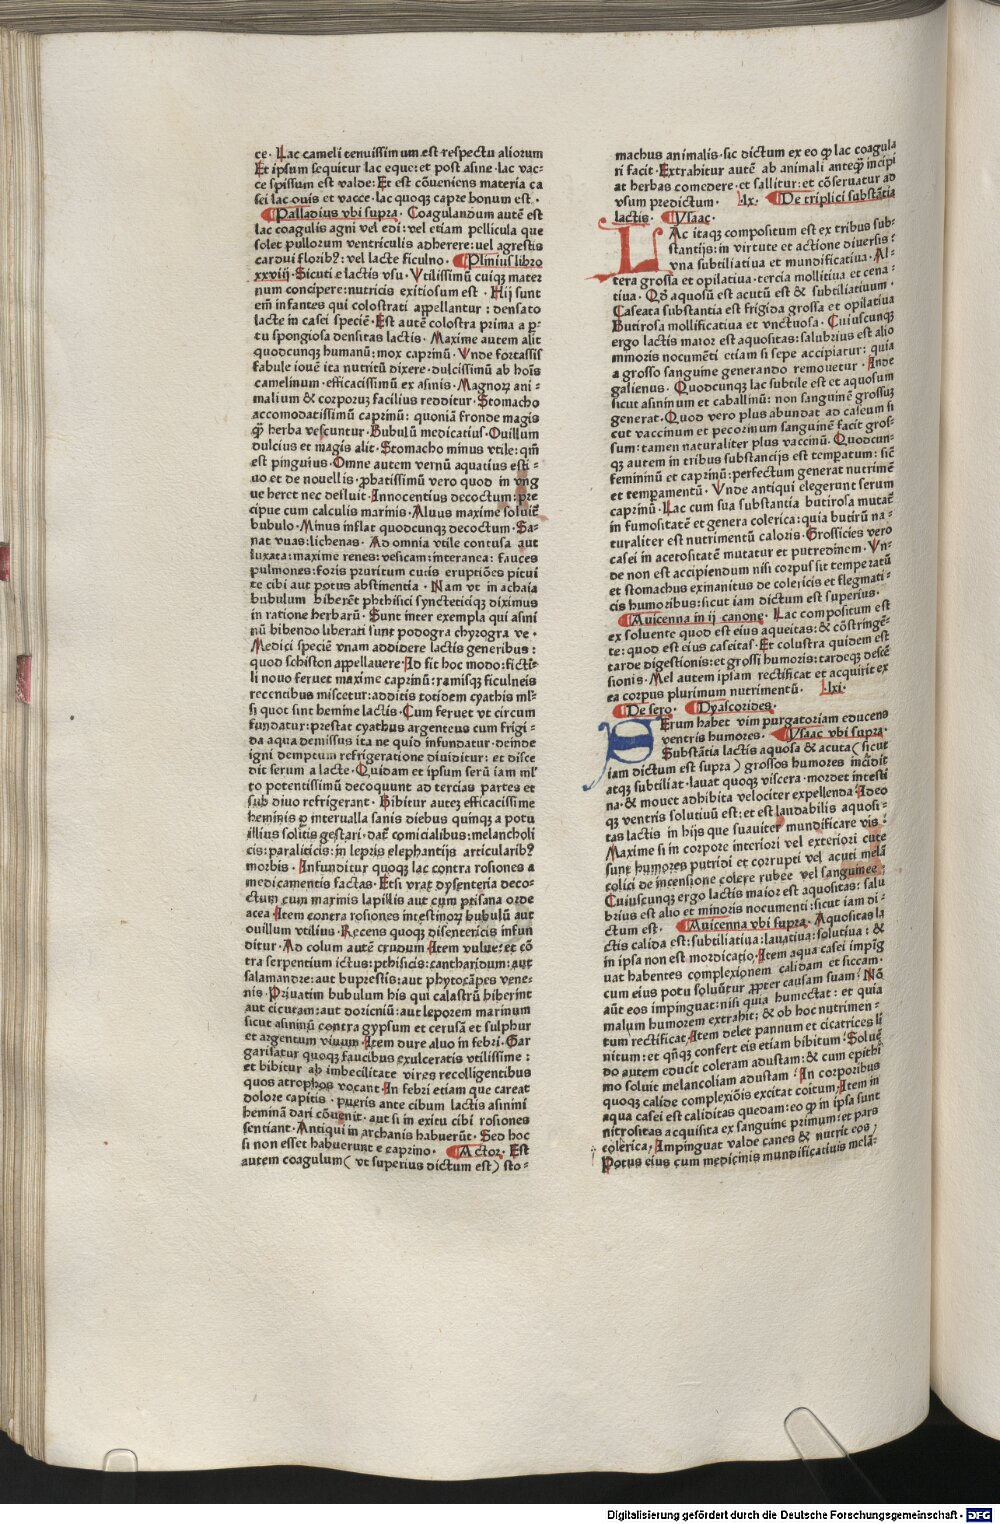 ce · Lac cameli tenuissimum est respectu aliorum
Et ipsum sequitur lac eque: et post asine · lac vac-
ce spissum est valde: Et est cōueniens materia ca
sei lac ouis et vacce · lac quoqꝫ capre bonum est ·
Palladius vbi supra · Coagulandum autē est
lac coagulis agni vel edi: vel etiam pellicula que
solet pullorum ventriculis adherere: uel agrestis
cardui floribꝫ: vel lacte ficulno · Plinius libro
xxviij · Sicuti e lactis vsu · Vtilissimū cuiqꝫ mater
num concipere: nutricis exitiosum est · Hij sunt
em̄ infantes qui colostrati appellantur : densato
lacte in casei speciē · Est autē colostra prima a ꝑ-
tu spongiosa densitas lactis · Maxime autem alit
quodcunqꝫ humanū: mox caprinū · Vnde fortassis
fabule iouē ita nutritū dixere · dulcissimū ab hoīs
camelinum · efficacissimū ex asinis · Magnoꝝ ani-
malium & corporuꝫ facilius redditur · Stomacho
accomodatissimū caprinū: quoniā fronde magis
qꝫ herba vescuntur · Bubulū medicatius · Ouillum
dulcius et magis alit · Stomacho minus vtile: qm̄
est pinguius · Omne autem vernū aquatius esti-
uo et de nouellis · ꝓbatissimū vero quod in vng
ue heret nec defluit · Innocentius decoctum: pre
cipue cum calculis marinis · Aluus maxime soluit
bubulo · Minus inflat quodcunqꝫ decoctum · Sa-
nat vuas: lichenas · Ad omnia vtile contusa aut
luxata: maxime renes: vesicam: interanea: fauces
pulmones: foris pruritum cutis eruptiōes pitui
te cibi aut potus abstinentia · Nam vt in achaia
bubulum biberēt phthisici syncteticiqꝫ diximus
in ratione herbarū · Sunt inter exempla qui asini
nū bibendo liberati sunt podogra chyrogra ve ·
Medici speciē vnam addidere lactis generibus :
quod schiston appellauere · Id fit hoc modo: ficti-
li nouo feruet maxime caprinū: ramisqꝫ ficulneis
recentibus miscetur: additis totidem cyathis ml-
si quot sunt hemine lactis · Cum feruet vt circum
fundatur: prestat cyathus argenteus cum frigi-
da aqua demissus ita ne quid infundatur · deinde
igni demptum refrigeratione diuiditur: et disce
dit serum a lacte · Quidam et ipsum serū iam ml'
to potentissimū decoquunt ad tercias partes et
sub diuo refrigerant · Bibitur auteꝫ efficacissime
heminis ꝑ interualla sanis diebus quinqꝫ a potu
illius solitis gestari · dat̄ comicialibus: melancholi
cis: paraliticis: in lepris elephantijs articularibꝫ
morbis · Infunditur quoqꝫ lac contra rosiones a
medicamentis factas · Etsi vrat dysenteria deco-
ctum cum marinis lapillis aut cum ptisana orde
acea · Item contra rosiones intestinoꝝ bubulū aut
ouillum vtilius · Recens quoqꝫ disentericis infun
ditur · Ad colum autē crudum · Item vulue: et cō
tra serpentium ictus: pthisicis: cantharidum: aut
salamandre: aut buprestis: aut phytocāpes vene-
nis · Priuatim bubulum his qui calastrū biberint
aut cicutam: aut doricniū: aut leporem marinum
sicut asininū contra gypsum et cerusā et sulphur
et argentum viuum · Item dure aluo in febri · Gar
garisatur quoqꝫ faucibus exulceratis vtilissime :
et bibitur ab imbecilitate vires recolligentibus
quos atrophos vocant · In febri etiam que careat
dolore capitis · pueris ante cibum lactis asinini
heminā dari cōuenit · aut si in exitu cibi rosiones
sentiant · Antiqui in archanis habuerūt · Sed hoc
si non esset habuerunt e caprino · Actor · Est
autem coagulum ( vt superius dictum est ) sto-
machus animalis · sic dictum ex eo qꝫ lac coagula
ri facit · Extrahitur autē ab animali anteqꝫ incipi
at herbas comedere · et sallitur: et cōseruatur ad
vsum predictum · lx · De triplici substātia
lactis · Ysaac ·
LAc itaqꝫ compositum est ex tribus sub-
stantijs: in virtute et actione diuersis :
vna subtiliatiua et mundificatiua · Al-
tera grossa et opilatiua · tercia mollitiua et cena-
tiua · Qd' aquosū est acutū est & subtiliatiuum ·
Caseata substantia est frigida grossa et opilatiua
Butirosa mollificatiua et vnctuosa · Cuiuscunqꝫ
ergo lactis maior est aquositas: salubrius est alio
minoris nocumēti etiam si sepe accipiatur: quia
a grosso sanguine generando remouetur · Inde
galienus · Quodcunqꝫ lac subtile est et aquosum
sicut asininum et caballinū: non sanguinē grossuꝫ
generat · Quod vero plus abundat ad caseum si
cut vaccinum et pecorinum sanguinē facit gros-
sum: tamen naturaliter plus vaccinū · Quodcun-
qꝫ autem in tribus substancijs est tempatum: sic
femininū et caprinū: perfectum generat nutrimē
et temperamentū · Vnde antiqui elegerunt serum
caprinū · Lac cum sua substantia butirosa mutat̄
in fumositatē et genera colerica: quia butirū na-
turaliter est nutrimentū caloris · Grossicies vero
casei in acetositatē mutatur et putredinem · Vn-
de non est accipiendum nisi corpus sit temperatū
et stomachus exinanitus de colericis et flegmati-
cis humoribus: sicut iam dictum est superius ·
Auicenna in ij canone · Lac compositum est
ex soluente quod est eius aqueitas: & cōstringē-
te: quod est eius caseitas · Et colustra quidem est
tarde digestionis: et grossi humoris: tardeqꝫ descē
sionis · Mel autem ipsam rectificat et acquirit ex
ea corpus plurimum nutrimentū · lxi ·
De sero · Dyascorides ·
SErum habet vim purgatoriam educens
ventris humores · Ysaac vbi supra ·
Substātia lactis aquosa & acuta ( sicut
iam dictum est supra ) grossos humores incidit
atqꝫ subtiliat · lauat quoqꝫ viscera · mordet intesti
na · & mouet adhibita velociter expellenda · Ideo
qꝫ ventris solutiuū est: et est laudabilis aquosi-
tas lactis in hijs que suauiter mundificare vis :
Maxime si in corpore interiori vel exteriori cute
sunt humores putridi et corrupti vel acuti melā
colici de incensione colere rubee vel sanguinee ·
Cuiuscunqꝫ ergo lactis maior est aquositas: salu
brius est alio et minoris nocumenti: sicut iam di-
ctum est · Auicenna vbi supra · Aquositas la
ctis calida est: subtiliatiua: lauatiua: solutiua : &
in ipsa non est mordicatio · Item aqua casei impig
uat habentes complexionem calidam et siccam ·
cum eius potu soluūtur ꝓpter causam suam : Nō
aūt eos impinguat: nisi quia humectat : et quia
malum humorem extrahit: & ob hoc nutrimen-
tum rectificat · Item delet pannum et cicatrices li
nitum: et qn̄qꝫ confert eis etiam bibitum · Soluē
do autem educit coleram adustam: & cum epithi
mo soluit melancoliam adustam · In corporibus
quoqꝫ calide complexiōis excitat coitum · Item in
aqua casei est caliditas quedam: eo qꝫ in ipsa sunt
nitrositas acquisita ex sanguine primum: et pars
colerica · Impinguat valde canes & nutrit eos ·
Potus eius cum medicinis mundificatiuis melā-
Digitalisierung gefördert durch die Deutsche Forschungsgemeinschaft - DFG